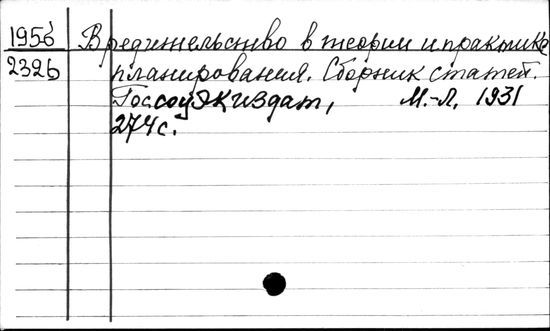 1956 Вредительство в теории и практике
2326 планирования. Сборник статей.
Госсоцэкиздат, М.-Л, 1931
274с.